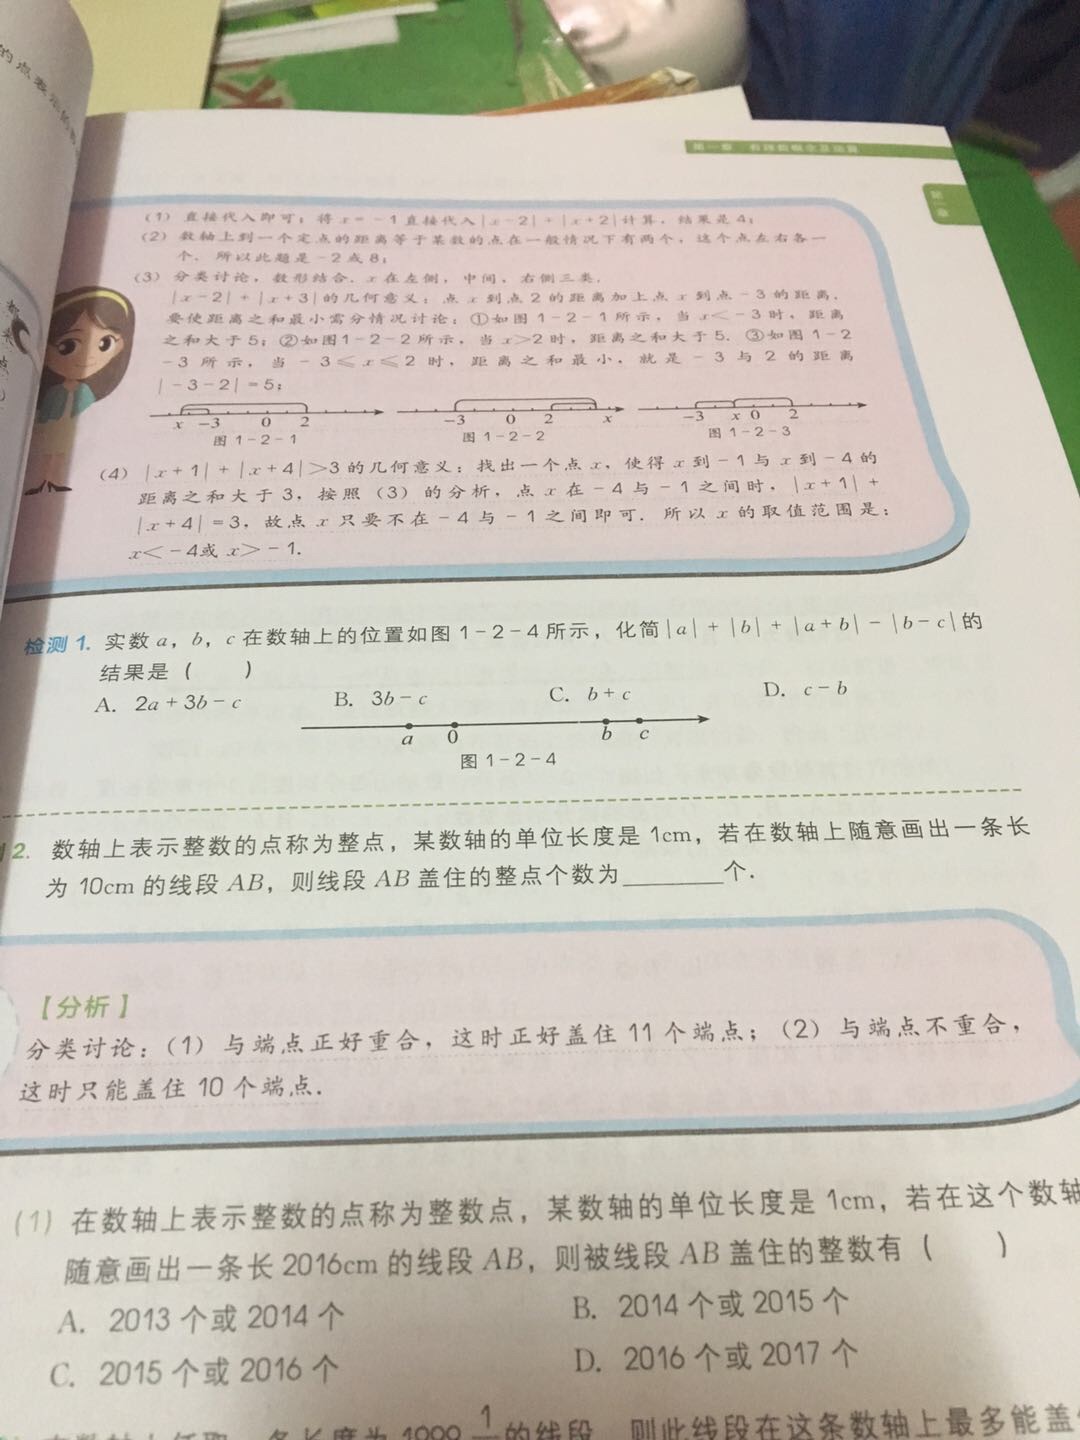 的点表示的
第一章 有理数概念及运算
第一章
(1) 直接代入即可：将 x=-1 直接代入|x-2|+|x+2|计算，结果是 4；
(2) 数轴上到一个定点的距离等于某数的点在一般情况下有两个，这个点左右各一
个．所以此题是 -2 或 8；
(3) 分类讨论，数形结合．x 在左侧，中间，右侧三类．
|x-2|+|x+3|的几何意义：点 x 到点 2 的距离加上点 x 到点 -3 的距离．
要使距离之和最小需分情况讨论：①如图 1-2-1 所示，当 x<-3 时，距离
之和大于 5；②如图1-2-2 所示，当 x>2时，距离之和大于 5．③如图 1-2
-3 所示，当 -3≤x≤2 时，距离之和最小，就是 -3 与 2 的距离
|-3-2|=5；
x -3 0 2
-3 0 2 x
-3 x 0 2
图 1-2-1
图 1-2-2
图 1-2-3
(4) |x+1|+|x+4|>3 的几何意义：找出一个点 x，使得 x 到 -1 与 x 到 -4 的
距离之和大于 3，按照（3）的分析，点 x 在 -4 与 -1 之间时，|x+1|+
|x+4|=3，故点 x 只要不在 -4 与 -1 之间即可．所以 x 的取值范围是：
x<-4或 x>-1．
检测 1. 实数 a，b，c 在数轴上的位置如图 1-2-4 所示，化简|a|+|b|+|a+b|-|b-c|的
结果是（　　）
A. 2a+3b-c B. 3b-c C. b+c D. c-b
a 0 b c
图 1-2-4
2. 数轴上表示整数的点称为整点，某数轴的单位长度是 1cm，若在数轴上随意画出一条长
为 10cm 的线段 AB，则线段 AB 盖住的整点个数为________个．
【分析】
分类讨论：（1）与端点正好重合，这时正好盖住 11 个端点；（2）与端点不重合，
这时只能盖住 10 个端点．
(1) 在数轴上表示整数的点称为整数点，某数轴的单位长度是 1cm，若在这个数轴
随意画出一条长 2016cm 的线段 AB，则被线段 AB 盖住的整数有（　　）
A. 2013 个或 2014 个 B. 2014 个或 2015 个
C. 2015 个或 2016 个 D. 2016 个或 2017 个
的线段，则此线段在这条数轴上最多能盖